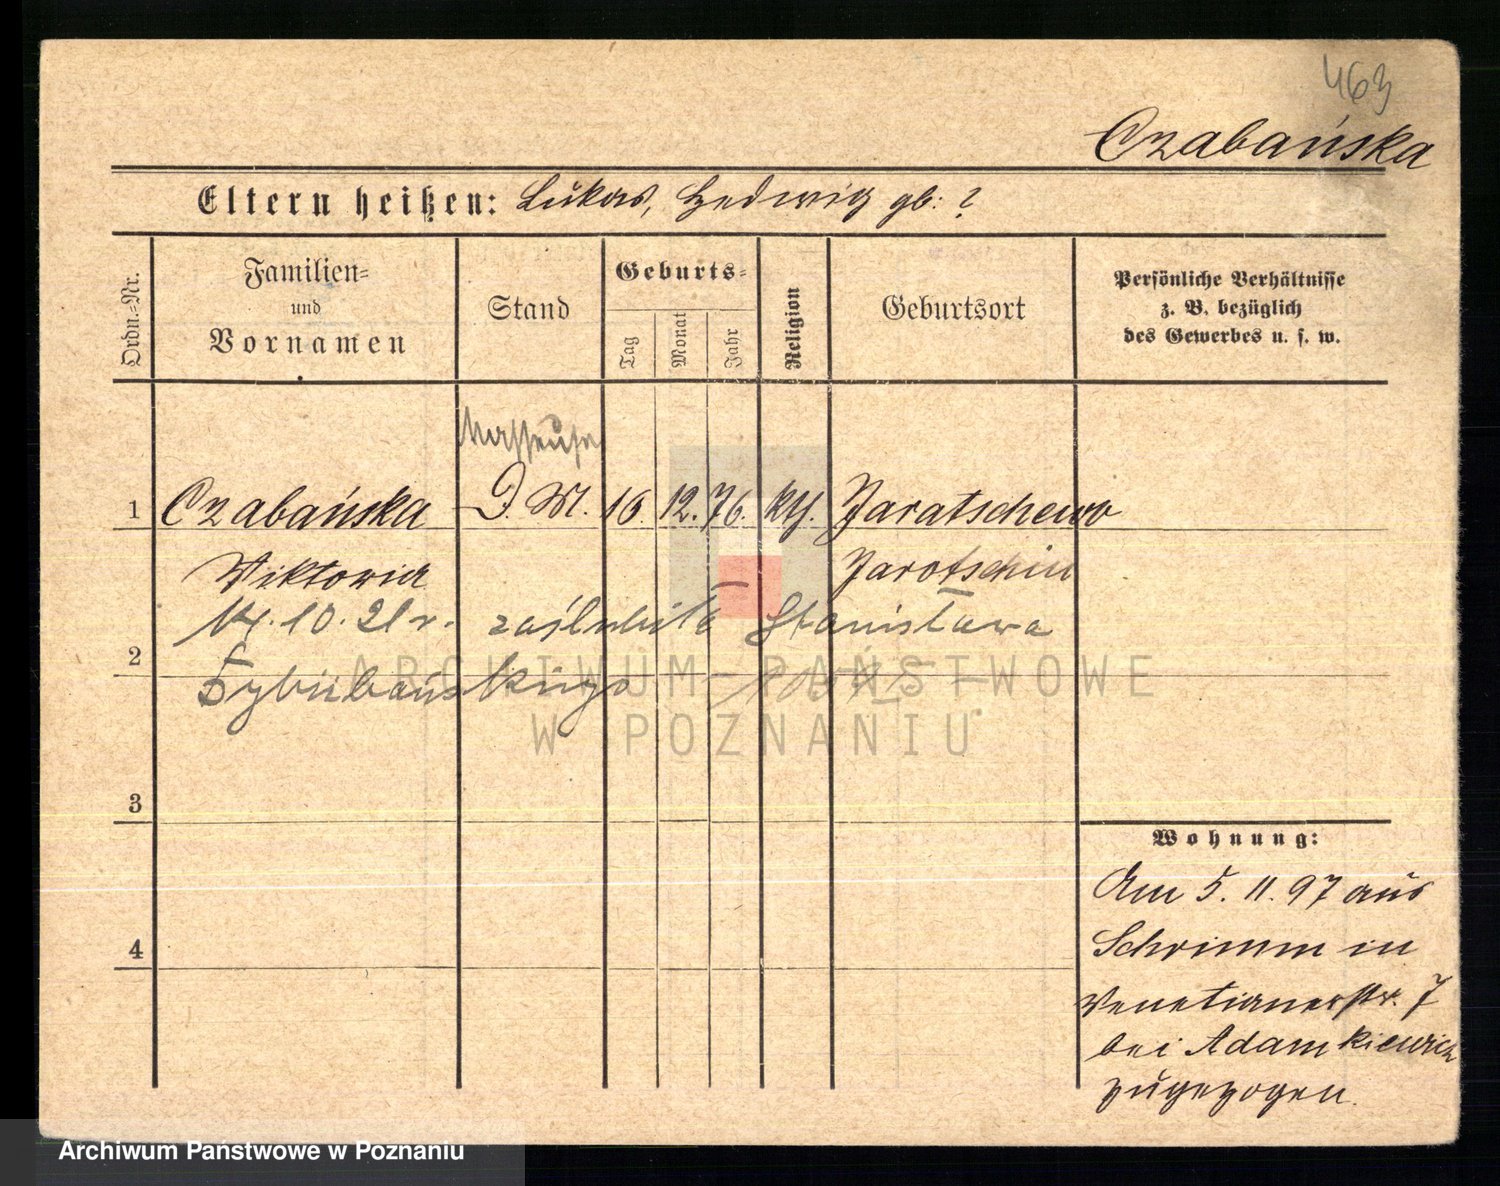 463
Czabańska
Eltern heißen: Lukas, Hedwig gb: ?
Ordn.-Nr.
Familien-
und
Vornamen
Stand
Geburts-
Tag
Monat
Jahr
Religion
Geburtsort
Persönliche Verhältnisse
z. B. bezüglich
des Gewerbes u. s. w.
Masseuse
1 Czabańska D. M. 16. 12. 76. kth. Jaratschewo
Viktoria Jarotschin
14. 10. 21 r. zaślubiła Stanisława
2
ARCHIWUM PAŃSTWOWE
W POZNANIU
3
4
Wohnung:
Am 5. 11. 97 aus
Schrimm in
Venetianerstr. 7
bei Adamkiewicz
zugezogen.
Archiwum Państwowe w Poznaniu